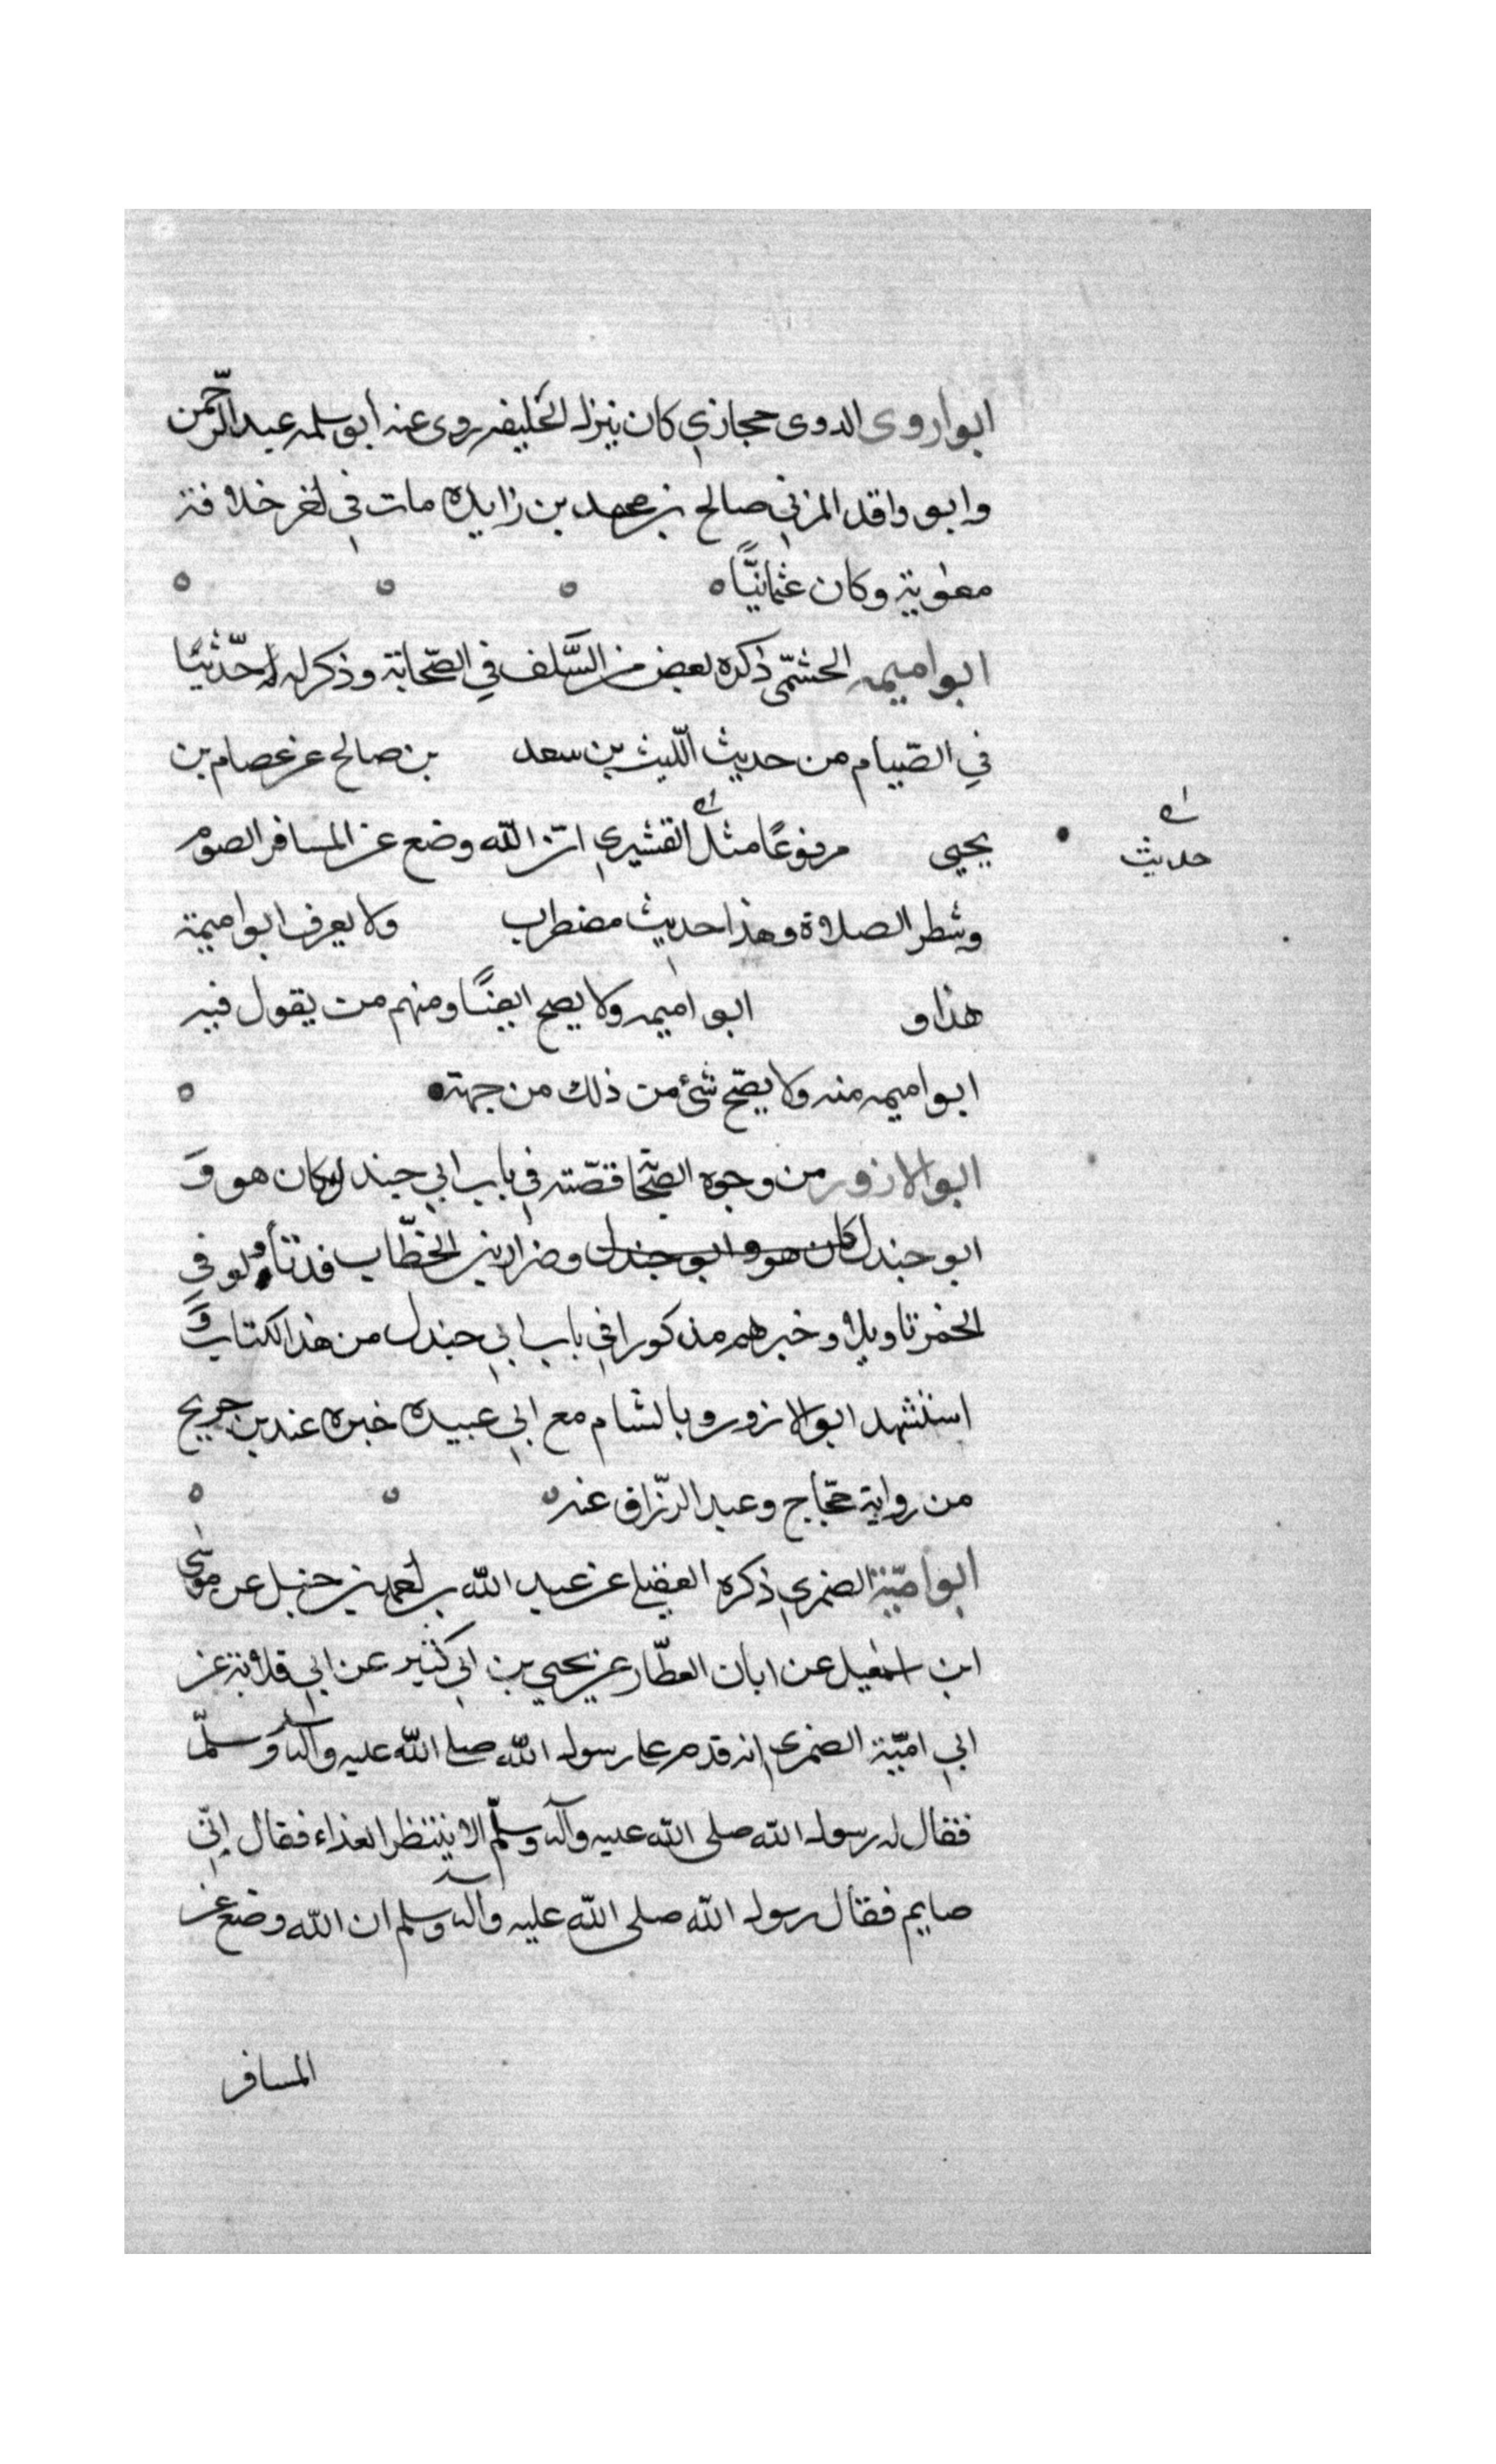 ابو اروى الدوى حجازي كان ينزل الحليفه روى عنه ابو سلمه عبد الرحمن
وابو واقد المزني صالح بن محمد بن زايده مات في اخر خلافة
معوية وكان عثمانيًّا
ابو اميمه الحشمّى ذكره بعض من السَّلف في الصّحابة وذكر له حدّيثًا
في الصّيام من حديث الّليث بن سعد بن صالح عن عصام بن
يحيى مرفوعًا مثل القشيري انّ الله وضع عن المسافر الصوم
حديث
وشطر الصلاة وهذا حديث مضطرب ولا يعرف ابو اميمة
هذا و ابو اميمه ولا يصح ايضًا ومنهم من يقول فيه
ابو اميمه منه ولا يصّح شئ من ذلك من جهته
ابو الازور من وجوه الصّحا قصّته في باب ابي جندل كان هو وَ
ابو جندل كان هو وابو جندل وضرار بن الخطّاب فد تأولو في
الخمر تاويلا وخبرهم مذكورا في باب ابي جندل من هذا الكتاب وَ
استشهد ابو الازور وبالشام مع ابي عبيده خبره عند بن جريح
من رواية حجّاج وعبد الرزّاق عنه
ابو اميّة الضمري ذكره العقيلي عن عبد الله بن احمد بن حنبل عن موسى
ابن اسمعيل عن ابان العطّار عن يحيى بن ابي كثير عن ابي قلابة عن
ابي اميّة الضمرى انه قدم على رسول الله صلى الله عليه وآله وسلّم
فقال له رسول الله صلى الله عليه وآله وسلّم الا ينتظر الغذاء فقال انّي
صايم فقال رسول الله صلى الله عليه وآله وسلم ان الله وضع عن
المسافر